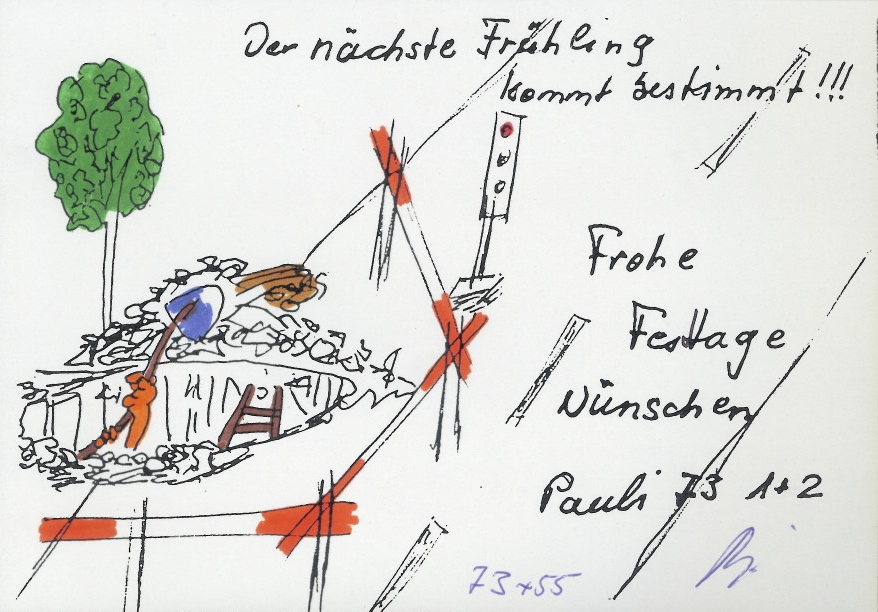 Der nächste Frühling
kommt bestimmt!!!
Frohe
Festtage
Wünschen
Pauli 73 1+2
73+55